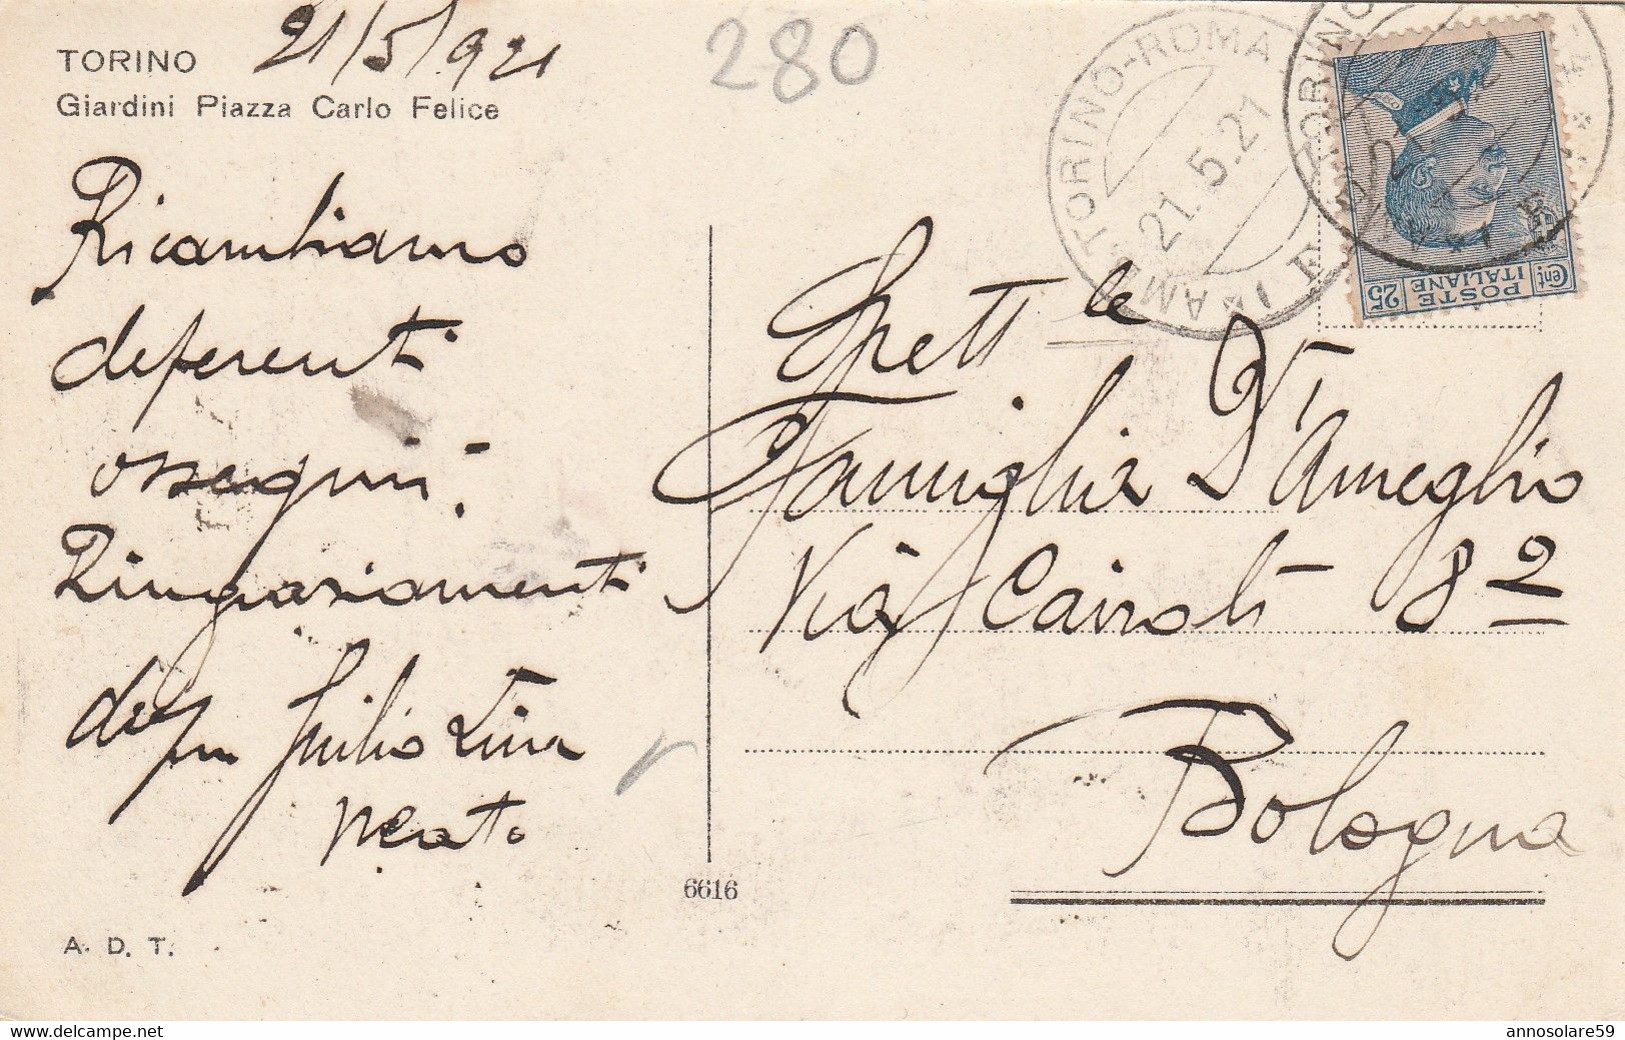 TORINO 21/5/921
Giardini Piazza Carlo Felice
280
Ricambiamo
deferenti
ossequi.
Ringraziamenti
Giulio Lina
A. D. T.
6616
TORINO-ROMA
21.5.21
AMB
Cent 25
POSTE ITALIANE
Spett le
Famiglia D'Ameglio
Via Cairoli 8 2
Bologna
www.delcampe.net
annosolare59